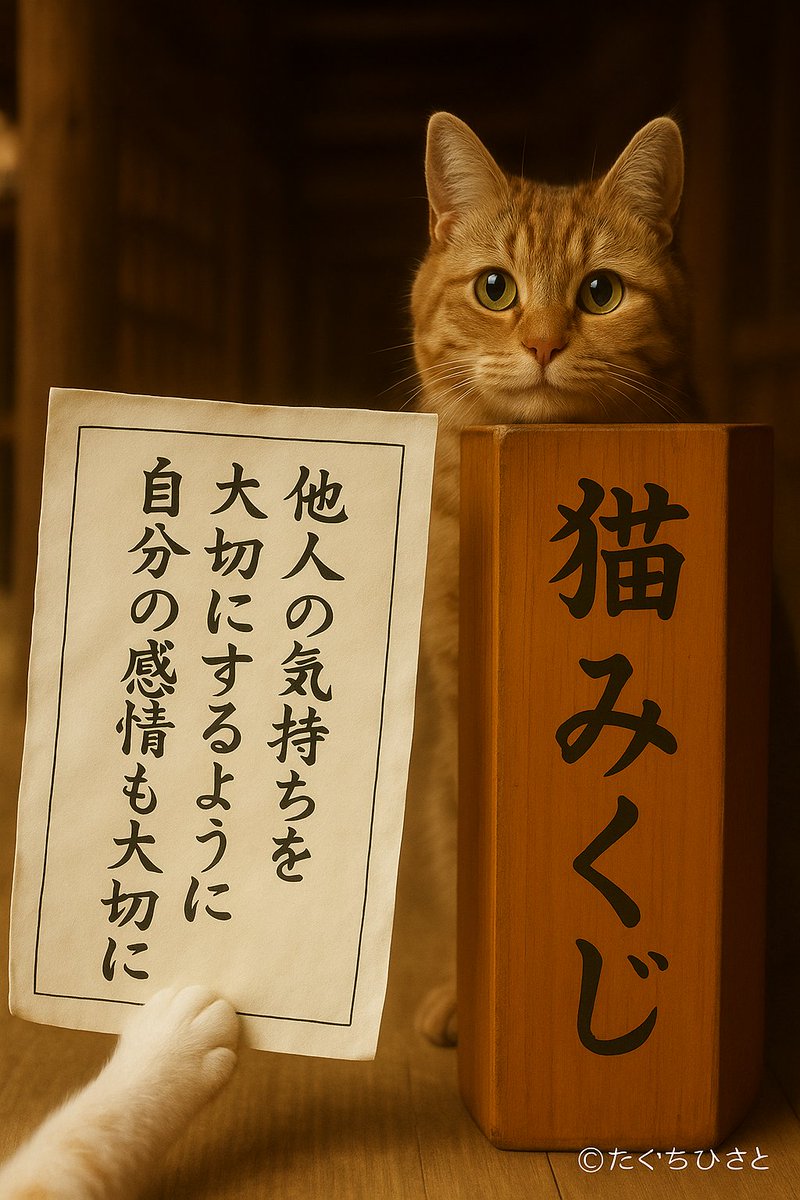 他人の気持ちを
大切にするように
自分の感情も大切に
猫みくじ
©たぐちひさと